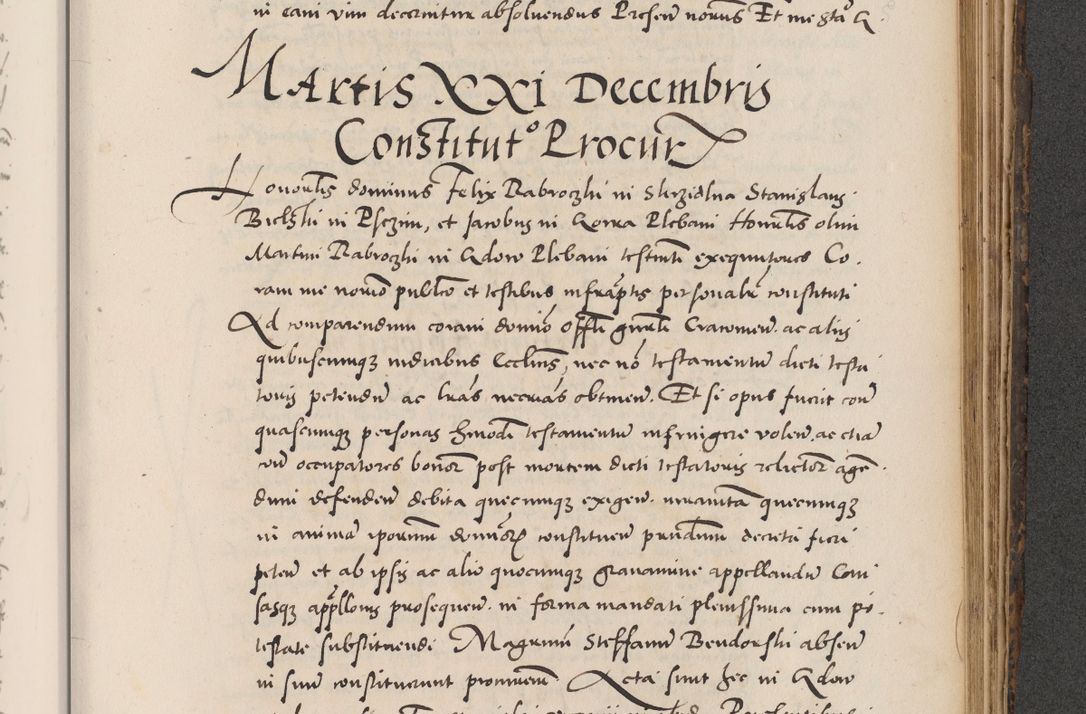 in eam vim decernitur absoluendus Presen̄ norūs Et me g̃tā Q.
Martis XXI Decembris
Constitutº Procur
Honorabilis dominus Felix Babroczki in Skrzidlna Stanislaus
Bielski in Psczim, et Jacobus in Gorra Plebani Honorabilis olim
Martini Babroczki in Gdow Plebani testm̄ti exequutores Co-
ram me norīo publico et testibus infrãptis personalr̃ constituti
Ad comparendum coram domīo offlī gnrāli Cracouien̄. ac alijs
quibuscumqꝫ iudicibus Ecclīcis, nec nō testamentū dicti testa
toris petendū ac lrās necriās obtinen̄. Et si opus fuerit con̄
quascumqꝫ personas hmōdi testamentū infringere volen̄. ac etiā
cū occupatores bonor̄ post mortem dicti testatoris relictor̄ agē-
dum defenden̄ debita quecumqꝫ exigen̄. iuramēta quecumqꝫ
in animā ipsorum dominorꝝ constituen̄ prn̄dum decreta fieri
peten̄ et ab ipsis ac alio quocumqꝫ grauamine appellandū Cau
sasqꝫ appellōnis prosequen̄. in forma mandati plenissima cum po-
testate substituendi Magrum Steffanū Bendorski absen̄
in suū constituerunt procurem̄ Acta sunt hec in Gdow